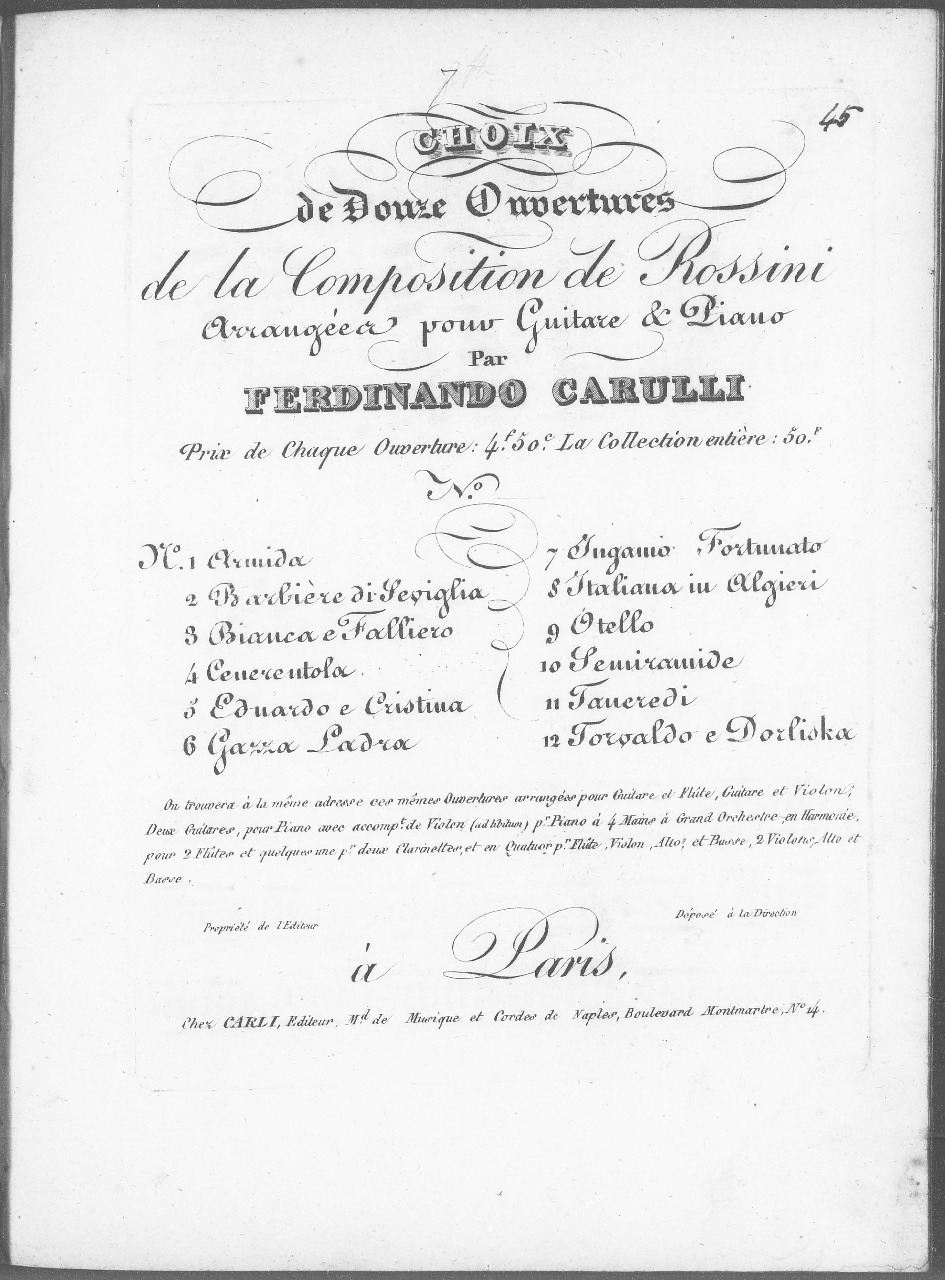 7
45
CHOIX
de Douze Ouvertures
de la Composition de Rossini
Arrangées pour Guitare & Piano
Par
FERDINANDO CARULLI
Prix de Chaque Ouverture: 4.f 50.c La Collection entière: 50.f
N.o
N.o 1 Armida
2 Barbière di Seviglia
3 Bianca e Falliero
4 Cenerentola.
5 Eduardo e Cristina
6 Gazza Ladra
7 Inganno Fortunato
8 Italiana in Algieri
9 Otello
10 Semiramide
11 Tancredi
12 Torvaldo e Dorliska
On trouvera à la même adresse ces mêmes Ouvertures arrangées pour Guitare et Flûte, Guitare et Violon,
Deux Guitares, pour Piano avec accomp.t de Violon (ad libitum) p.r Piano à 4 Mains à Grand Orchestre en Harmonie,
pour 2 Flûtes et quelques une p.r deux Clarinettes, et en Quatuor p.r Flûte, Violon, Alto, et Basse, 2 Violons, Alto et
Basse.
Propriété de l'Editeur
Déposé à la Direction
à Paris,
Chez CARLI, Editeur, M.d de Musique et Cordes de Naples, Boulevard Montmartre, N.o 14.